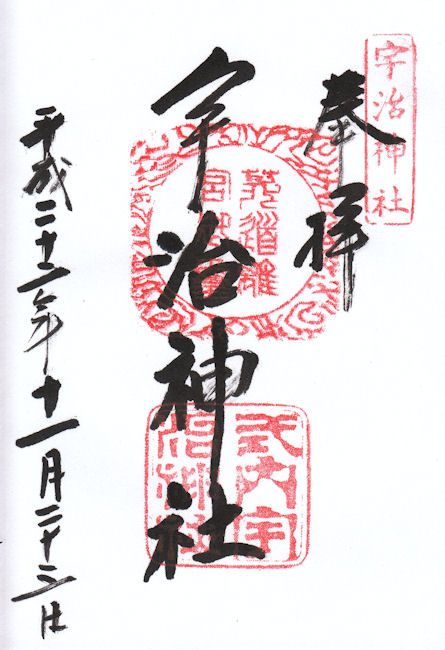 宇治神社
奉拝
宇治神社
菟道離
宮
式内宇
治神社
平成二十二年十一月二十三日